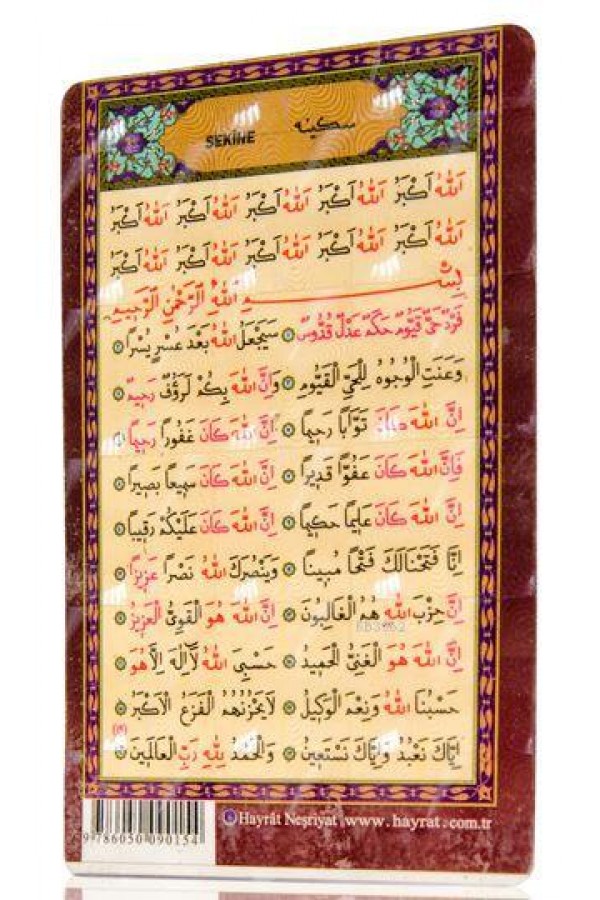 SEKİNE سكينه
اَللّٰهُ اَكْبَرُ اَللّٰهُ اَكْبَرُ اَللّٰهُ اَكْبَرُ اَللّٰهُ اَكْبَرُ اَللّٰهُ اَكْبَرُ
اَللّٰهُ اَكْبَرُ اَللّٰهُ اَكْبَرُ اَللّٰهُ اَكْبَرُ اَللّٰهُ اَكْبَرُ اَللّٰهُ اَكْبَرُ
بِسْمِ اللّٰهِ الرَّحْمٰنِ الرَّحِيمِ
فَرْدٌ حَىٌّ قَيُّومٌ حَكَمٌ عَدْلٌ قُدُّوسٌ سَيَجْعَلُ اللّٰهُ بَعْدَ عُسْرٍ يُسْرًا
وَعَنَتِ الْوُجُوهُ لِلْحَىِّ الْقَيُّومِ وَاِنَّ اللّٰهَ بِكُمْ لَرَؤُفٌ رَحِيمٌ
اِنَّ اللّٰهَ كَانَ تَوَّابًا رَحِيمًا اِنَّ اللّٰهَ كَانَ غَفُورًا رَحِيمًا
فَاِنَّ اللّٰهَ كَانَ عَفُوًّا قَدِيرًا اِنَّ اللّٰهَ كَانَ سَمِيعًا بَصِيرًا
اِنَّ اللّٰهَ كَانَ عَلِيمًا حَكِيمًا اِنَّ اللّٰهَ كَانَ عَلَيْكُمْ رَقِيبًا
اِنَّا فَتَحْنَا لَكَ فَتْحًا مُبِينًا وَيَنْصُرَكَ اللّٰهُ نَصْرًا عَزِيزًا
اِنَّ حِزْبَ اللّٰهِ هُمُ الْغَالِبُونَ اِنَّ اللّٰهَ هُوَ الْقَوِىُّ الْعَزِيزُ
اِنَّ اللّٰهَ هُوَ الْغَنِىُّ الْحَمِيدُ حَسْبِىَ اللّٰهُ لَٓا اِلٰهَ اِلَّا هُوَ
حَسْبُنَا اللّٰهُ وَنِعْمَ الْوَكِيلُ لَا يَحْزُنُهُمُ الْفَزَعُ الْاَكْبَرُ
اِيَّاكَ نَعْبُدُ وَاِيَّاكَ نَسْتَعِينُ وَالْحَمْدُ لِلّٰهِ رَبِّ الْعَالَمِينَ
(١٩)
Hayrât Neşriyat www.hayrat.com.tr
9 786050 090154